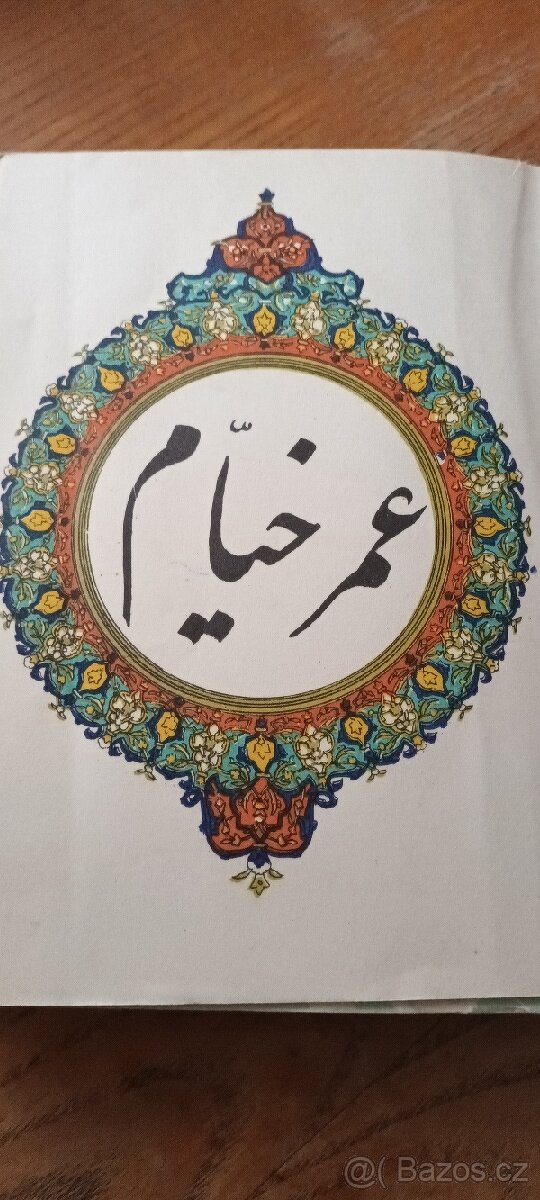 عمر خیّام
@( Bazos.cz